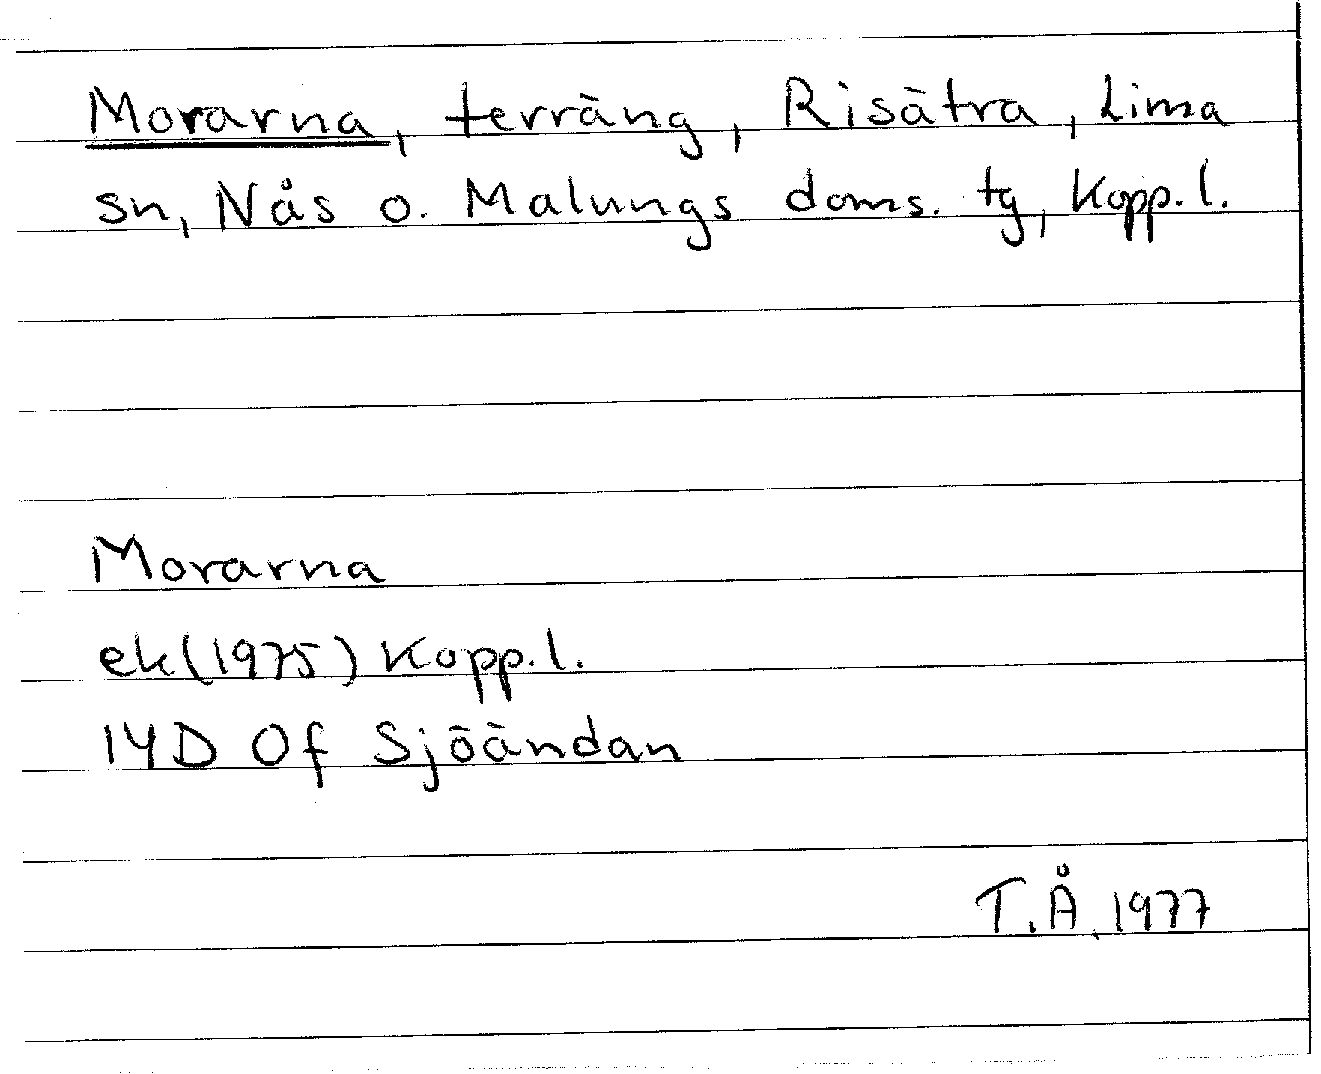 Morarna, terräng, Risätra, Lima
sn, Nås o. Malungs doms. tg, Kopp.l.
Morarna
ek(1975) Kopp.l.
14D 0f Sjöändan
T.Å. 1977